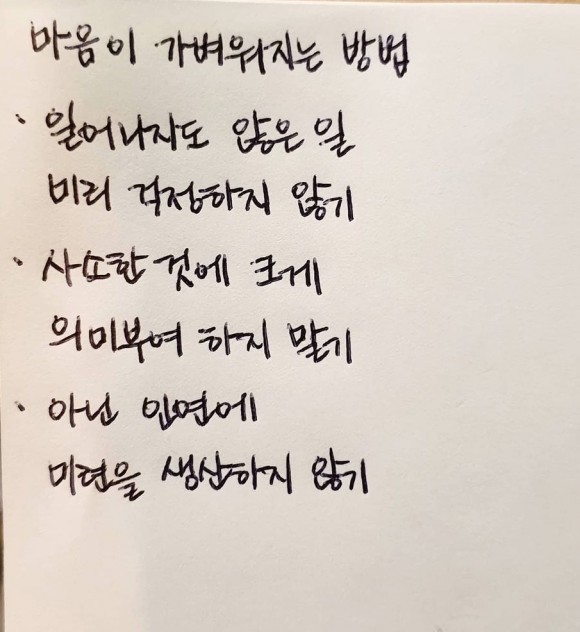 마음이 가벼워지는 방법
· 일어나지도 않은 일
미리 걱정하지 않기
· 사소한 것에 크게
의미부여 하지 말기
· 아닌 인연에
미련을 생산하지 않기